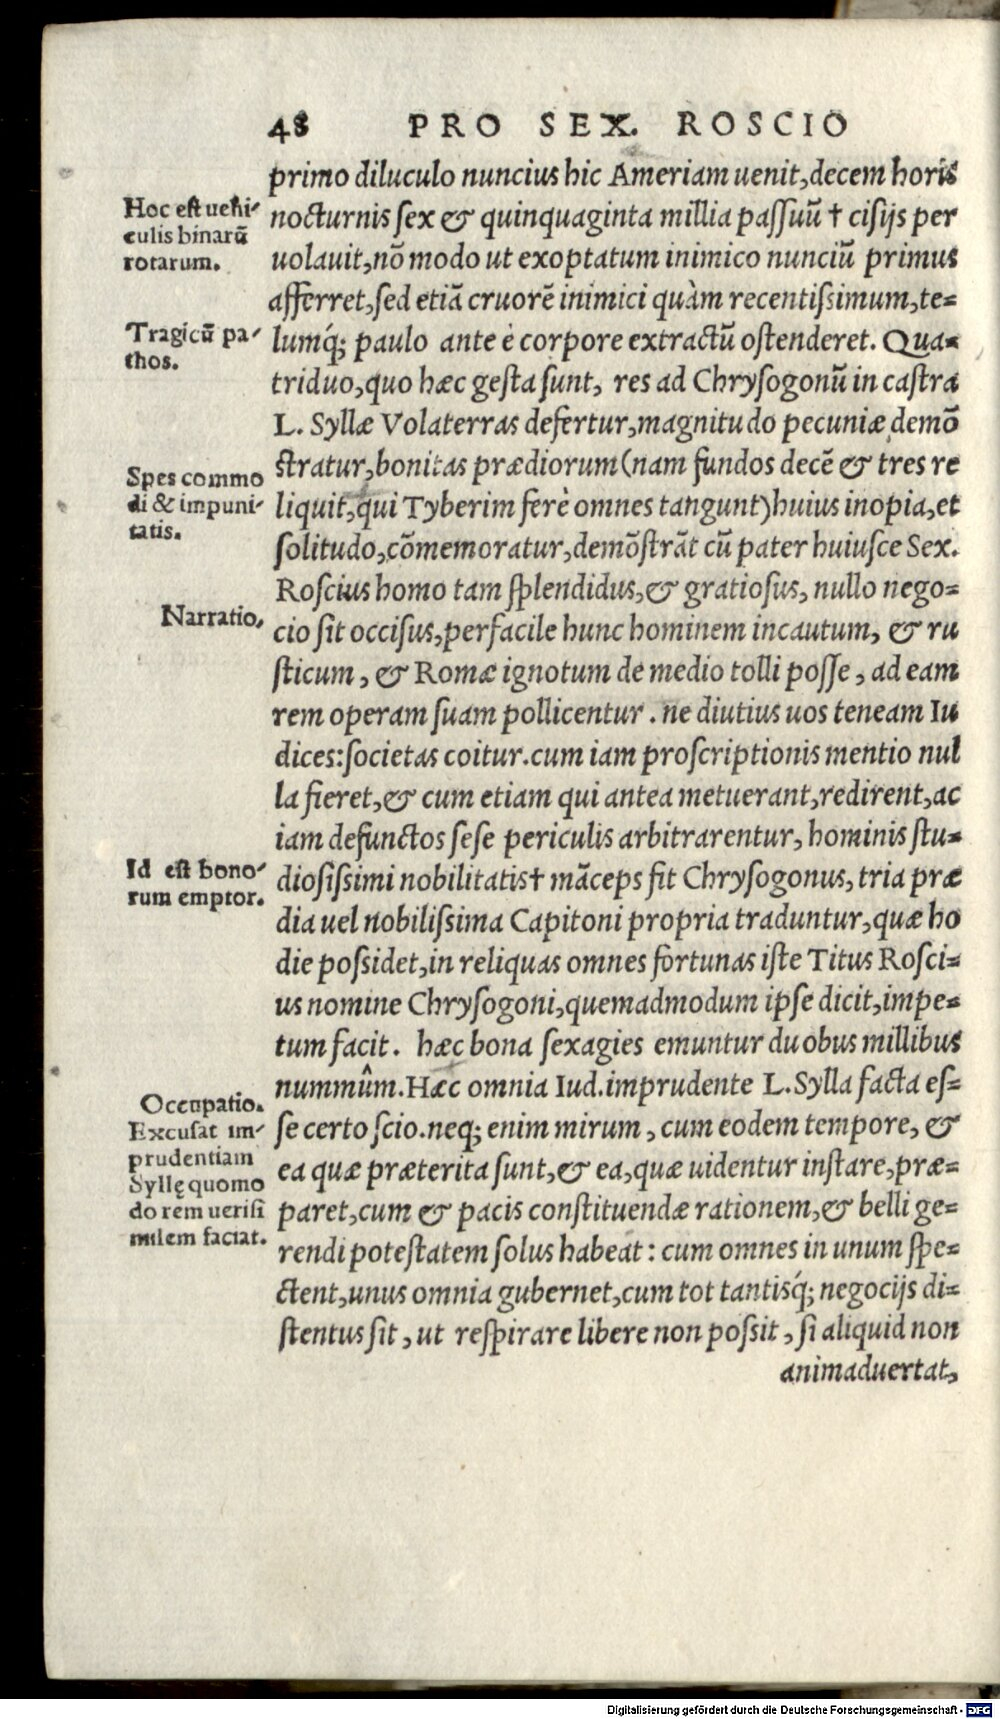 48 PRO SEX. ROSCIO
primo diluculo nuncius hic Ameriam uenit, decem horis
nocturnis sex & quinquaginta millia passuũ † cisijs per
uolauit, nõ modo ut exoptatum inimico nunciũ primus
afferret, sed etiã cruorẽ inimici quàm recentissimum, te=
lumq́; paulo ante è corpore extractũ ostenderet. Qua=
triduo, quo hæc gesta sunt, res ad Chrysogonũ in castra
L. Syllæ Volaterras defertur, magnitudo pecuniæ demõ
stratur, bonitas prædiorum (nam fundos decẽ & tres re
liquit, qui Tyberim ferè omnes tangunt) huius inopia, et
solitudo, cõmemoratur, demõstrãt cũ pater huiusce Sex.
Roscius homo tam splendidus, & gratiosus, nullo nego=
cio sit occisus, perfacile hunc hominem incautum, & ru
sticum, & Romæ ignotum de medio tolli posse, ad eam
rem operam suam pollicentur. ne diutius uos teneam Iu
dices: societas coitur. cum iam proscriptionis mentio nul
la fieret, & cum etiam qui antea metuerant, redirent, ac
iam defunctos sese periculis arbitrarentur, hominis stu=
diosissimi nobilitatis † mãceps fit Chrysogonus, tria præ
dia uel nobilissima Capitoni propria traduntur, quæ ho
die possidet, in reliquas omnes fortunas iste Titus Rosci=
us nomine Chrysogoni, quemadmodum ipse dicit, impe=
tum facit. hæc bona sexagies emuntur duobus millibus
nummûm. Hæc omnia Iud. imprudente L. Sylla facta es=
se certo scio. neq; enim mirum, cum eodem tempore, &
ea quæ præterita sunt, & ea, quæ uidentur instare, præ=
paret, cum & pacis constituendæ rationem, & belli ge=
rendi potestatem solus habeat: cum omnes in unum spe=
ctent, unus omnia gubernet, cum tot tantisq́; negocijs di=
stentus sit, ut respirare libere non possit, si aliquid non
animaduertat,
Hoc est uehi-
culis binarũ
rotarum.
Tragicũ pa-
thos.
Spes commo
di & impuni-
tatis.
Narratio.
Id est bono-
rum emptor.
Occupatio.
Excusat im-
prudentiam
Syllę quomo
do rem uerisi
milem faciat.
Digitalisierung gefördert durch die Deutsche Forschungsgemeinschaft - DFG